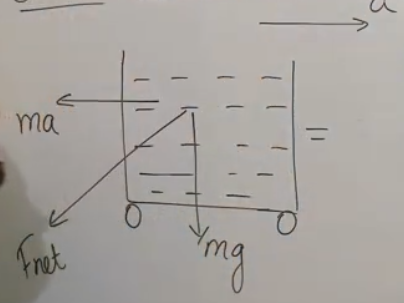 a
ma
=
Fnet
mg